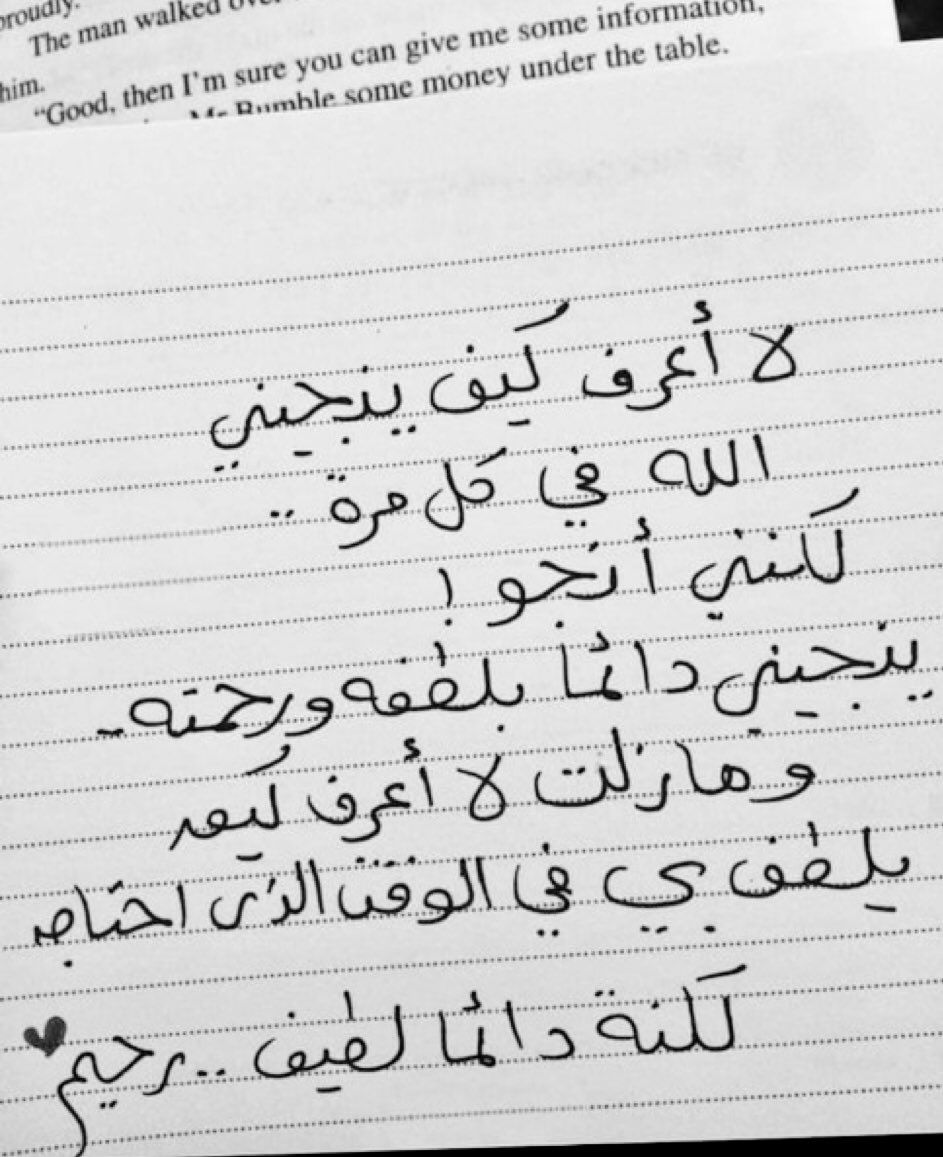 proudly.
The man walked over
him.
"Good, then I'm sure you can give me some information,
Mr Bumble some money under the table.
لا أعرف كيف ينجيني
الله في كل مرة ..
لكنني أنجو !
ينجيني دائمًا بلطفه ورحمته ..
وما زلت لا أعرف كيف
يلطف بي في الوقت الذي احتاجه
لكنة دائمًا لطيف .. رحيم